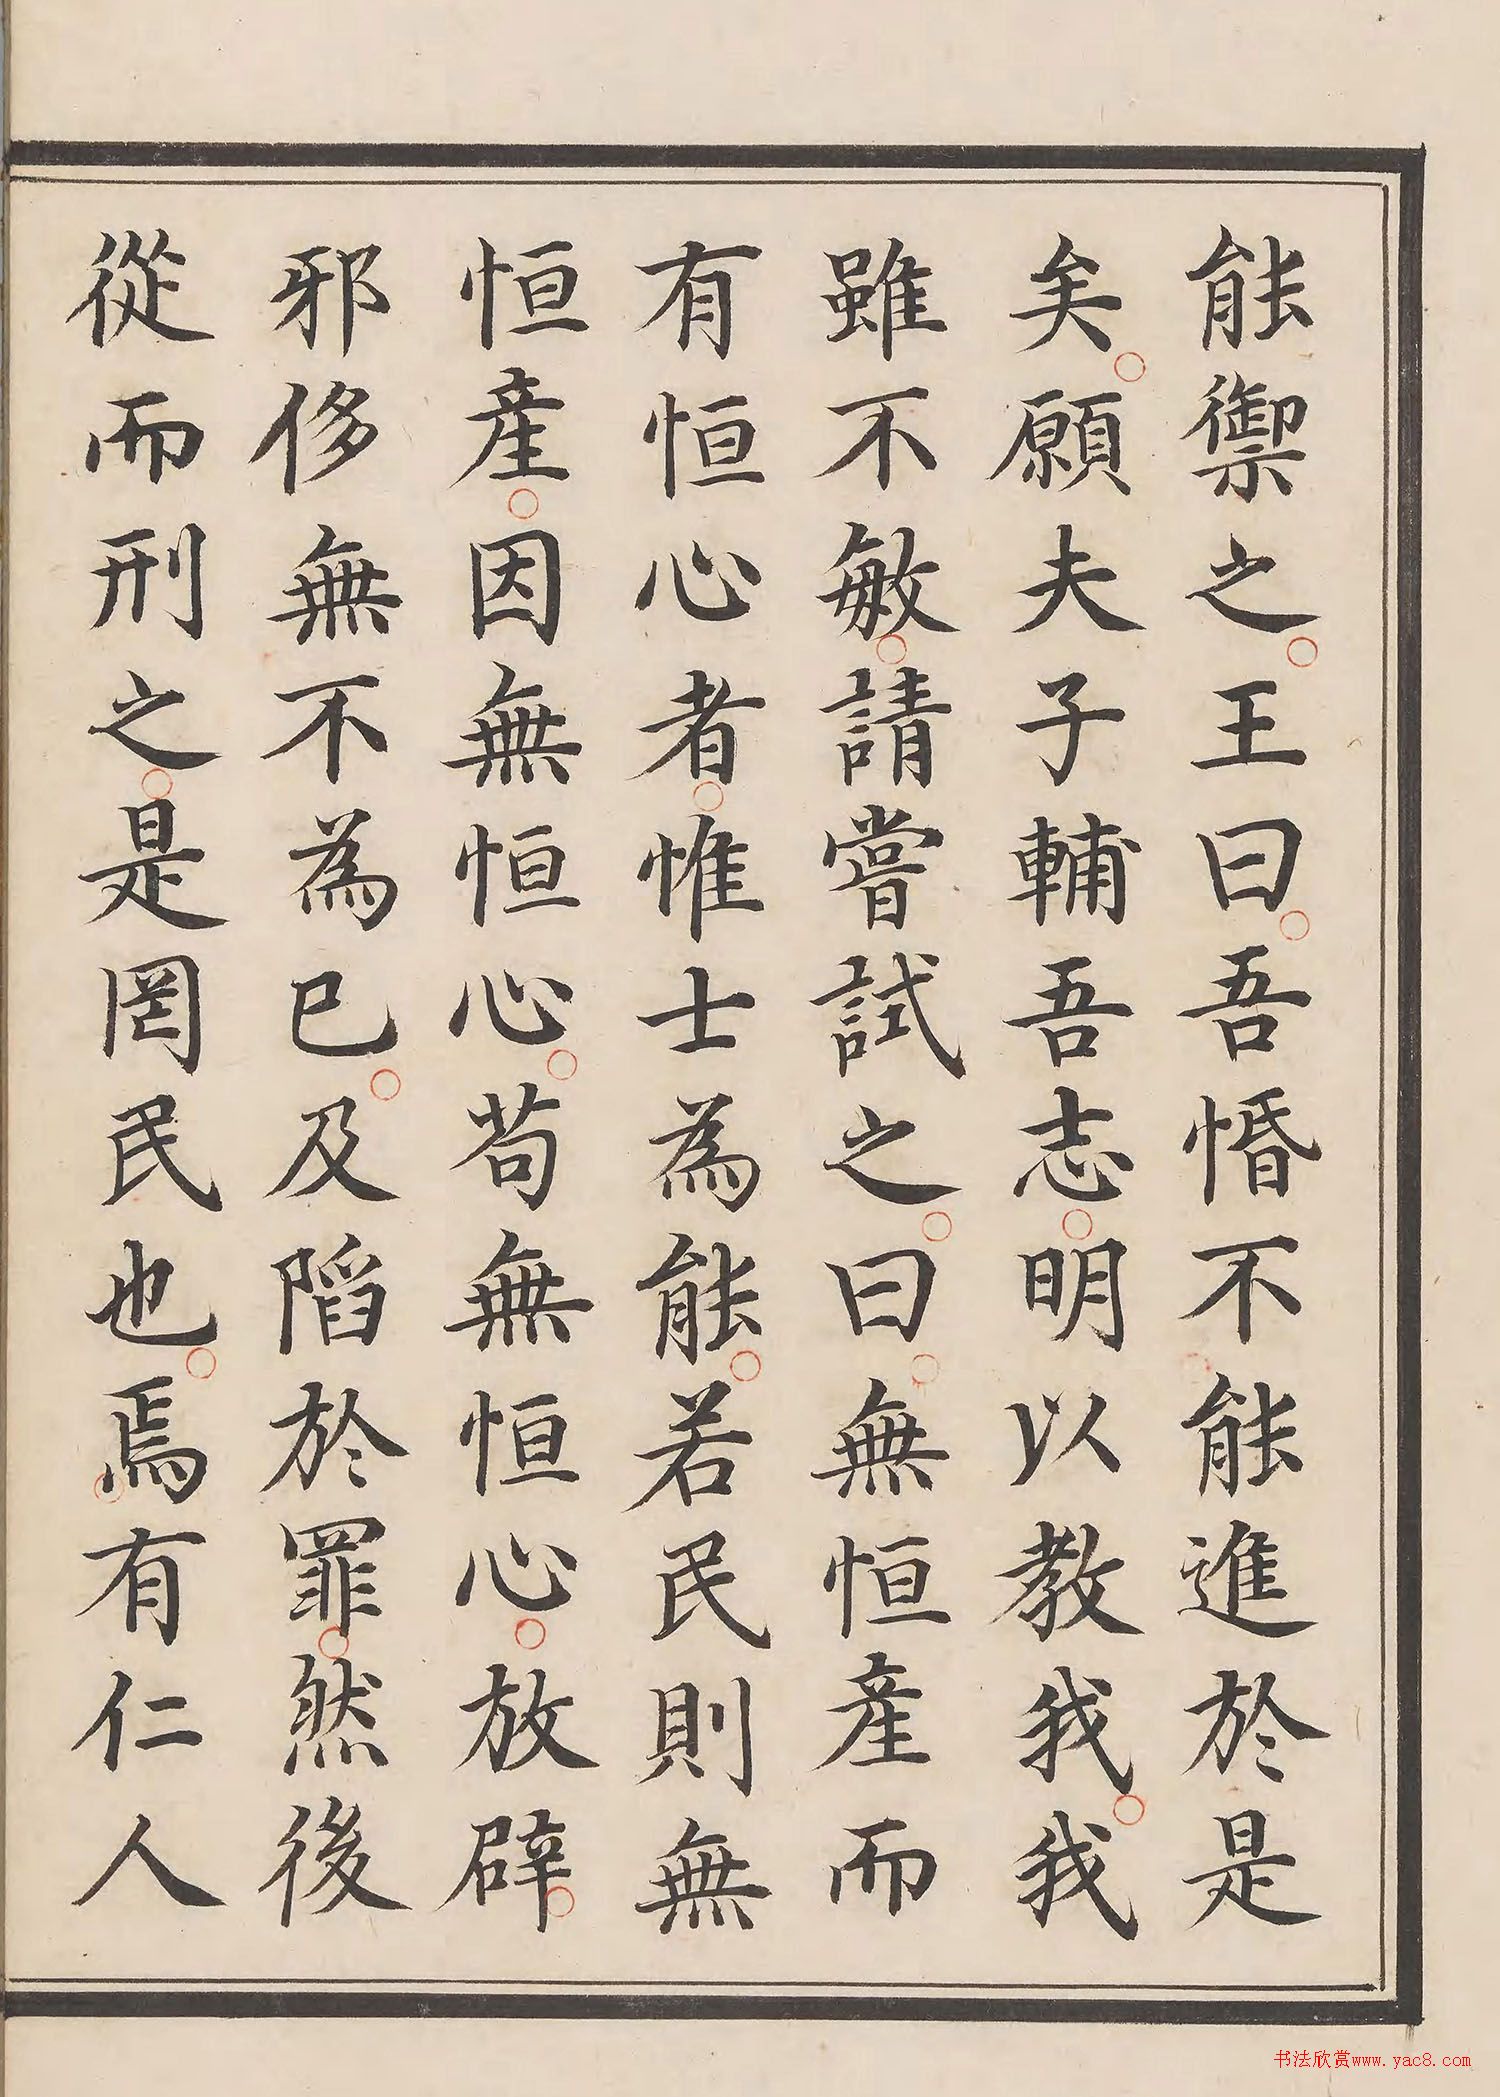 能禦之。王曰。吾惛不能進於是
矣。願夫子輔吾志。明以教我。我
雖不敏。請嘗試之。曰。無恒產而
有恒心者。惟士為能。若民則無
恒產。因無恒心。苟無恒心。放辟。
邪侈無不為已。及陷於罪。然後
從而刑之。是罔民也。焉有仁人
书法欣赏www.yac8.com